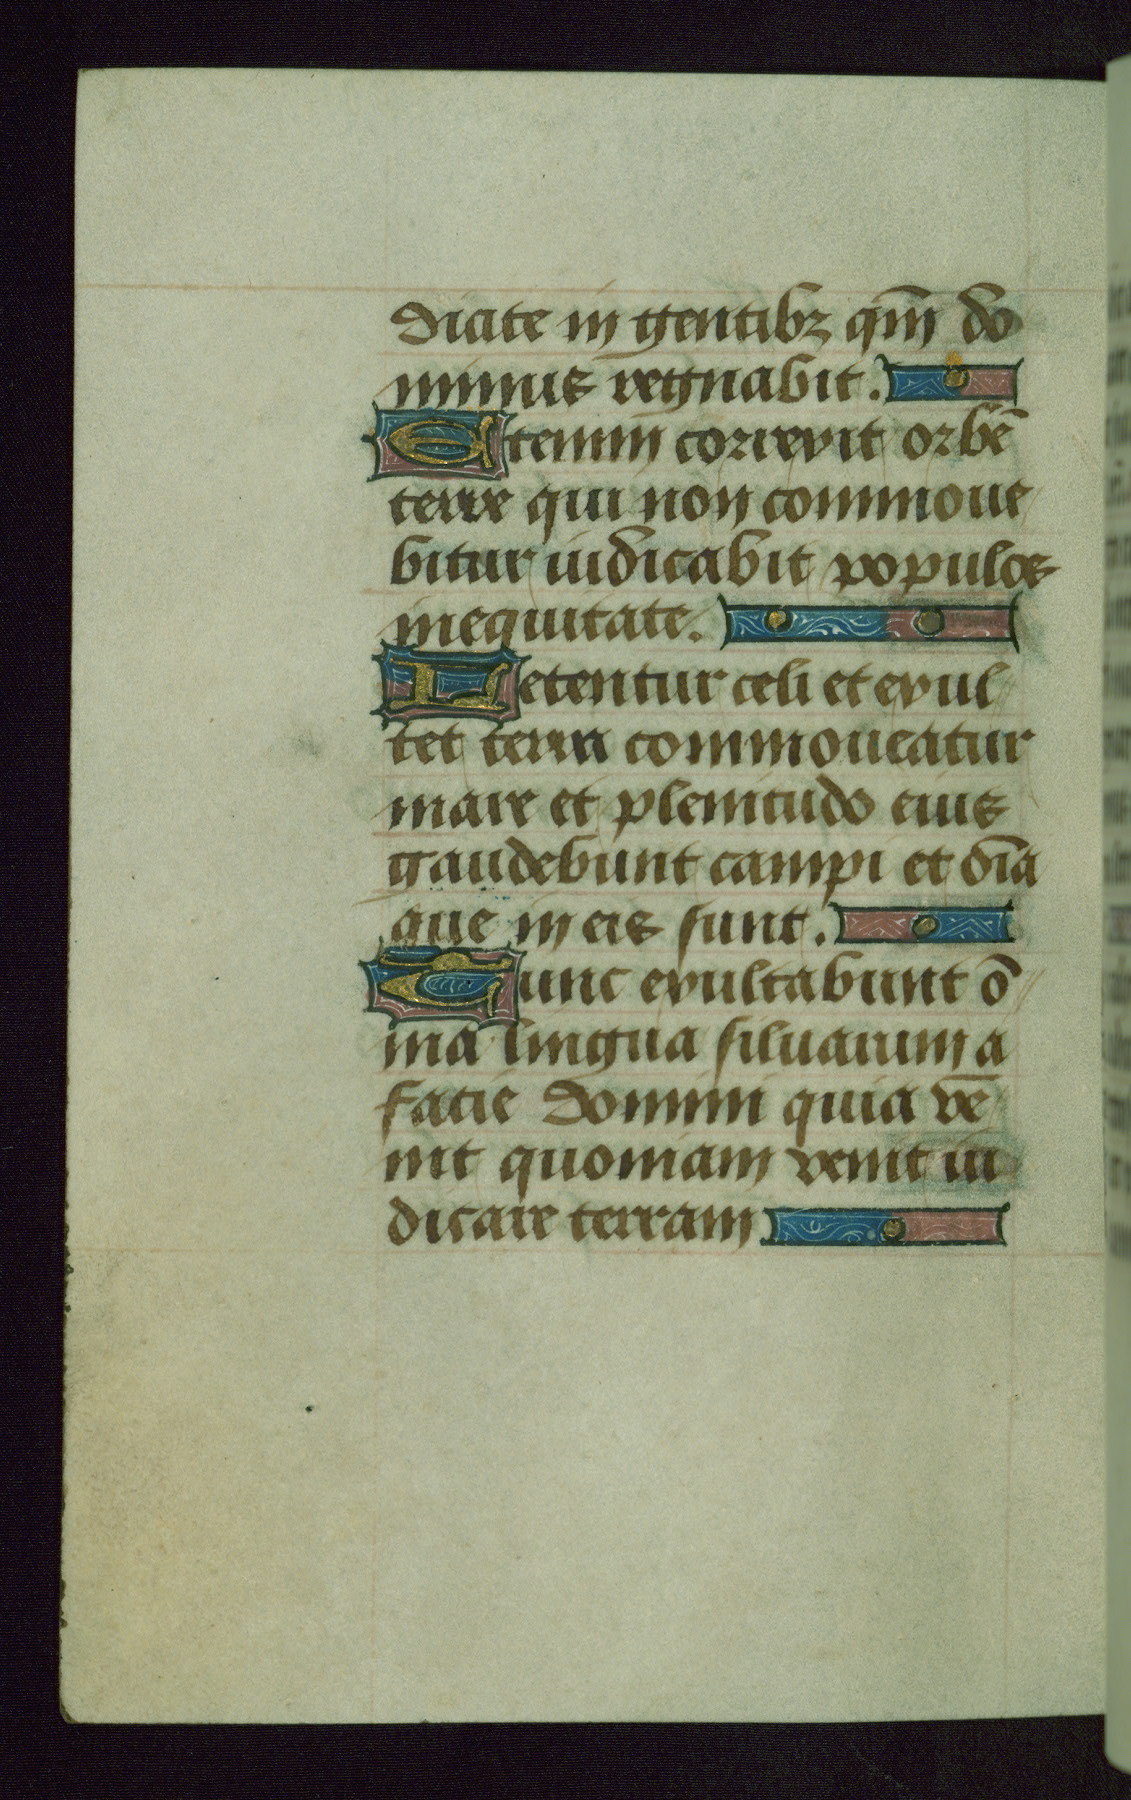 dicate in gentibꝫ qm̄ do
minus regnabit.
Etenim correxit orbē
terre qui non commoue
bitur iudicabit populos
in equitate.
Letentur celi et exul
tet terra commoueatur
mare et plenitudo eius
gaudebunt campi et oīa
que in eis sunt.
Tunc exultabunt ō
nia lingua siluarum a
facie domini quia vē
nit quoniam venit iu
dicare terram